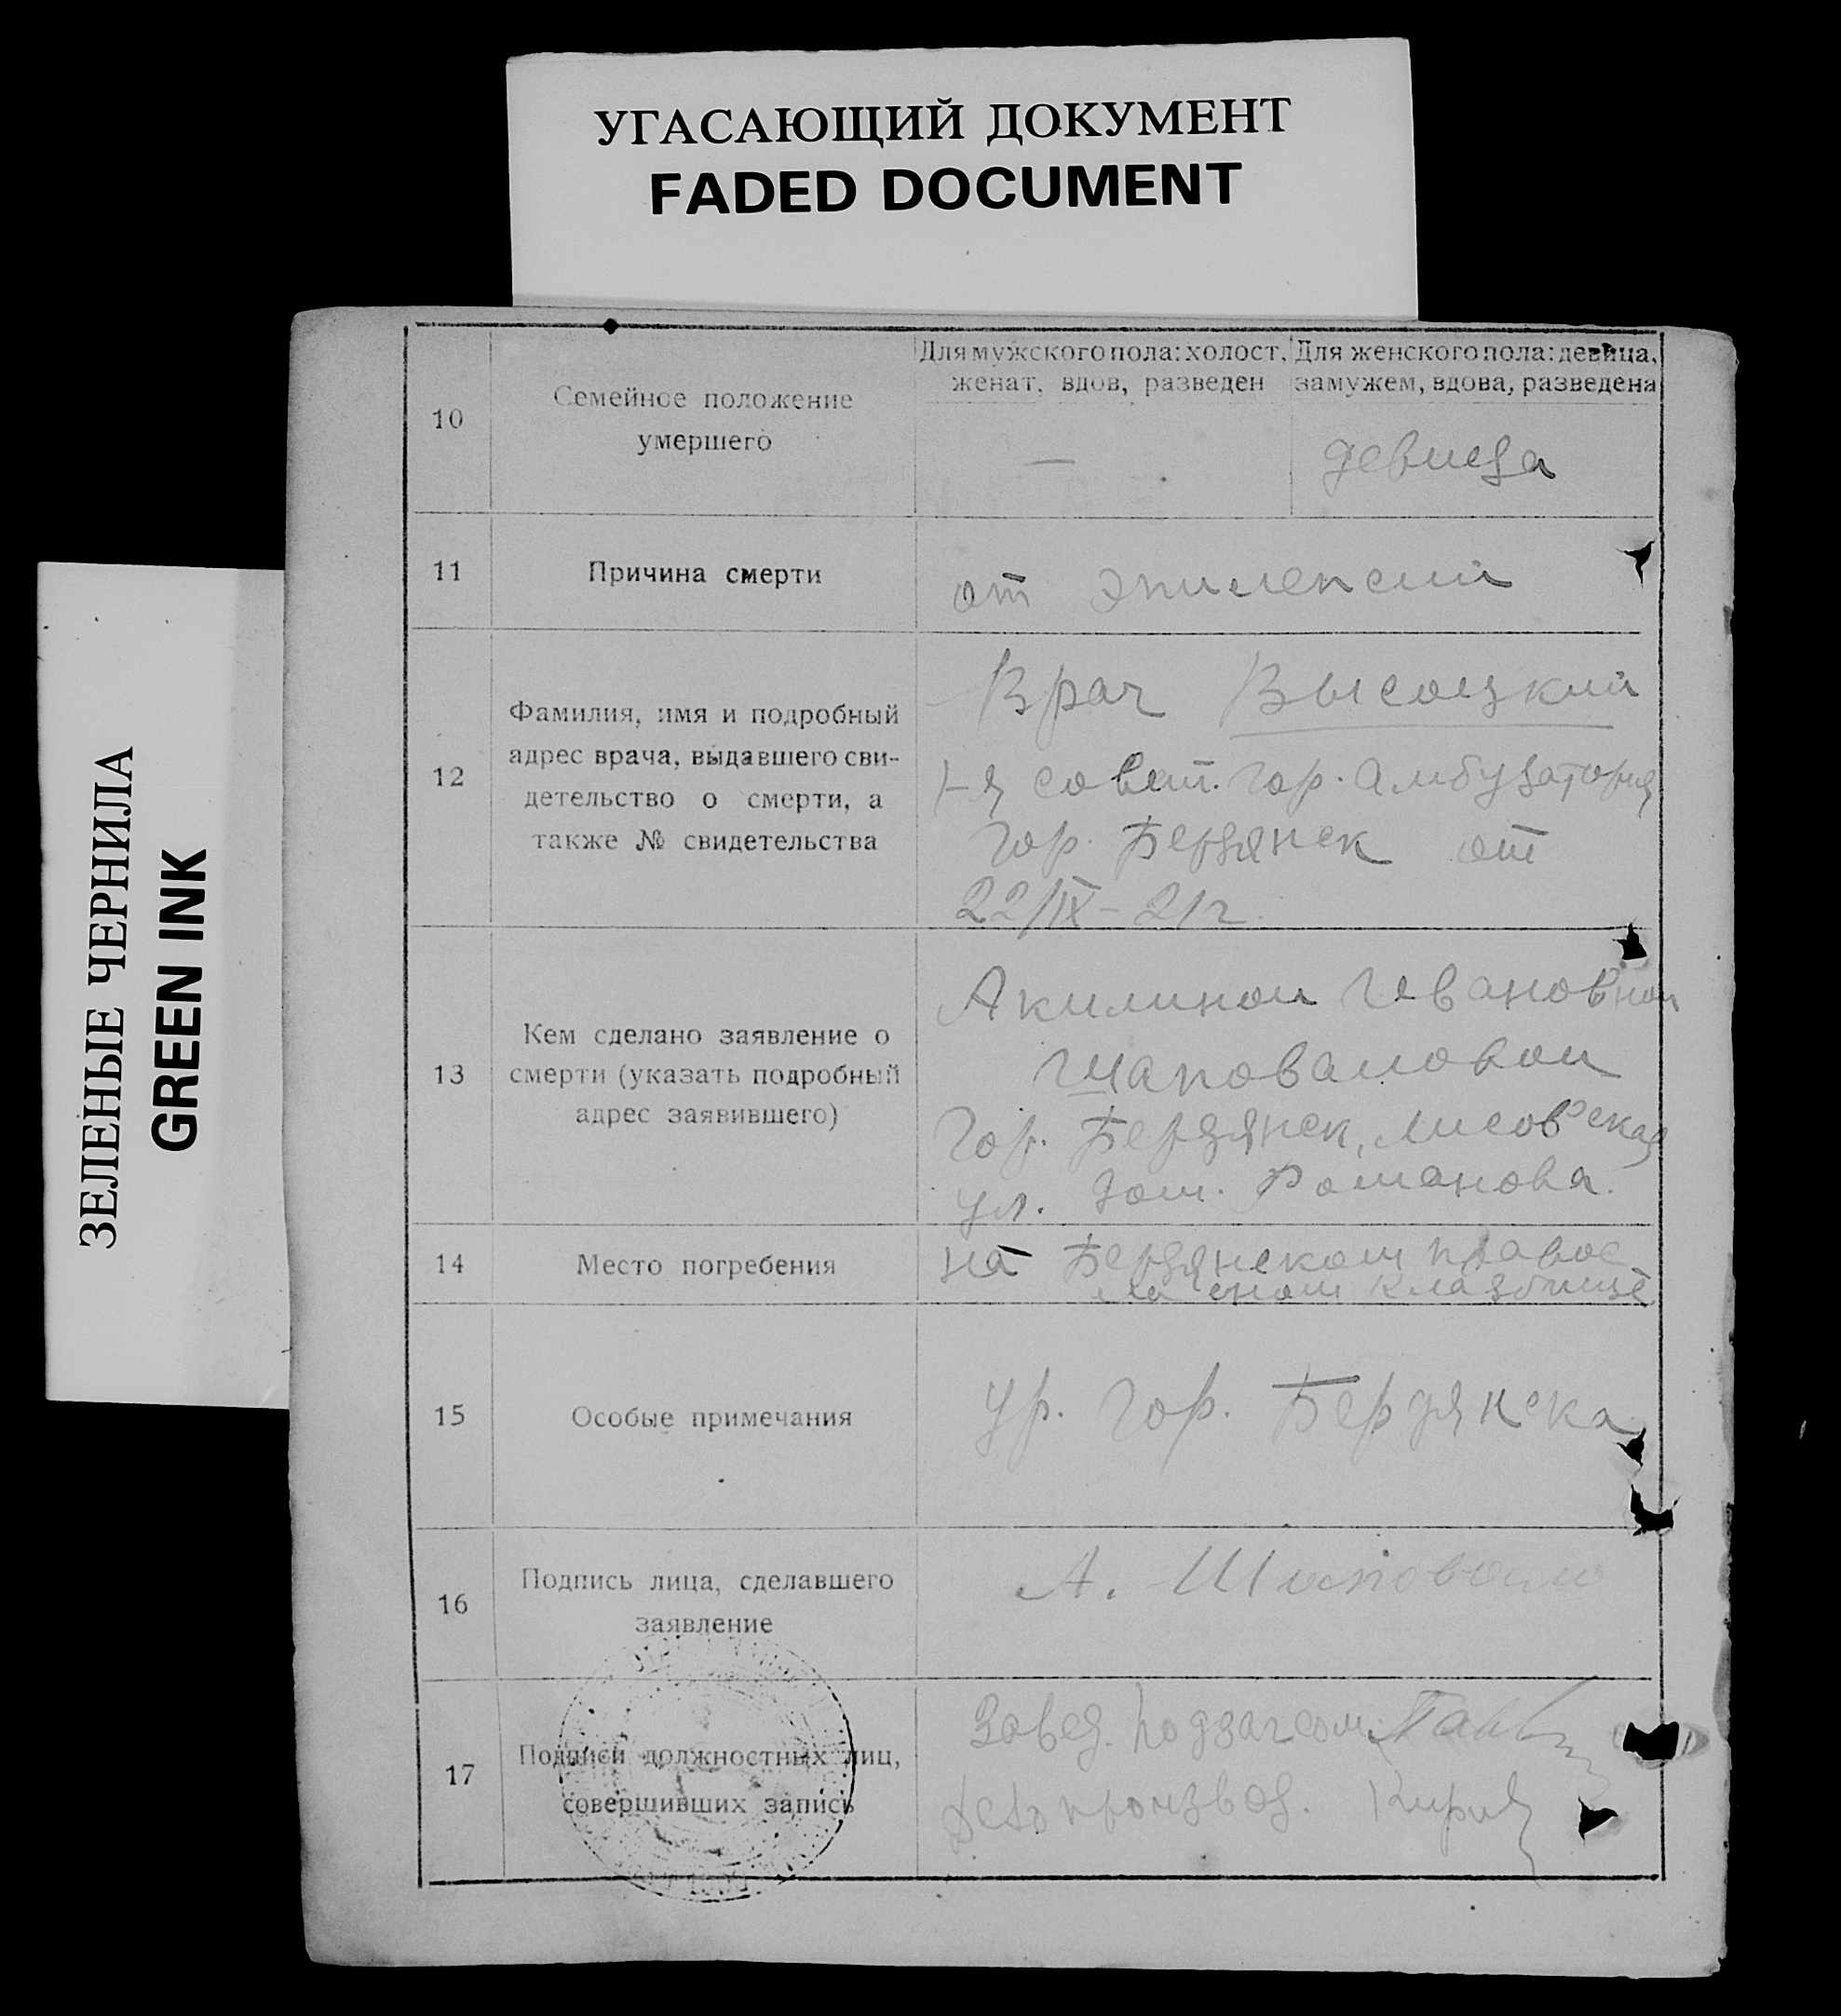 УГАСАЮЩИЙ ДОКУМЕНТ
FADED DOCUMENT
ЗЕЛЕНЫЕ ЧЕРНИЛА
GREEN INK
10
Семейное положение
умершего
Для мужского пола: холост,
женат, вдов, разведен
—
Для женского пола: девица,
замужем, вдова, разведена
девица
11
Причина смерти
от эпилепсии
12
Фамилия, имя и подробный
адрес врача, выдавшего сви-
детельство о смерти, а
также № свидетельства
Врач Высоцкий
1-я совет. гор. амбулатория
гор. Бердянск от
22/IX-21г.
13
Кем сделано заявление о
смерти (указать подробный
адрес заявившего)
Акилиной Ивановной
Шаповаловой
Гор. Бердянск, Лисовская
ул. дом. Романова.
14
Место погребения
на Бердянском правос
лавном кладбище
15
Особые примечания
Ур. гор. Бердянска
16
Подпись лица, сделавшего
заявление
А. Шаповало
17
Подписи должностных лиц,
совершивших запись
Завед. подзагсом
Делопроизвод.